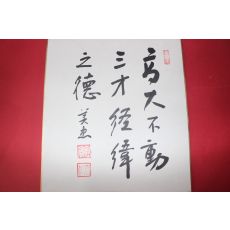 高大不動
三才經緯
之德